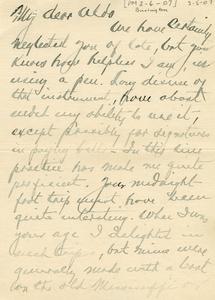 [PM 2-6-07] 2-6-07
Burlington
My dear Aldo
We have certainly
neglected you of late, but you
know how helpless I am, in
using a pen. Long disuse of
that instrument, have about
ended my ability to use it,
except possibly for signatures
in paying bills. In this line
practice has made me quite
proficient. Your midnight
foot trip must have been
quite interesting. When I was
your age I delighted in
such trips, but mine were
generally made with a boat
on the old Mississippi or